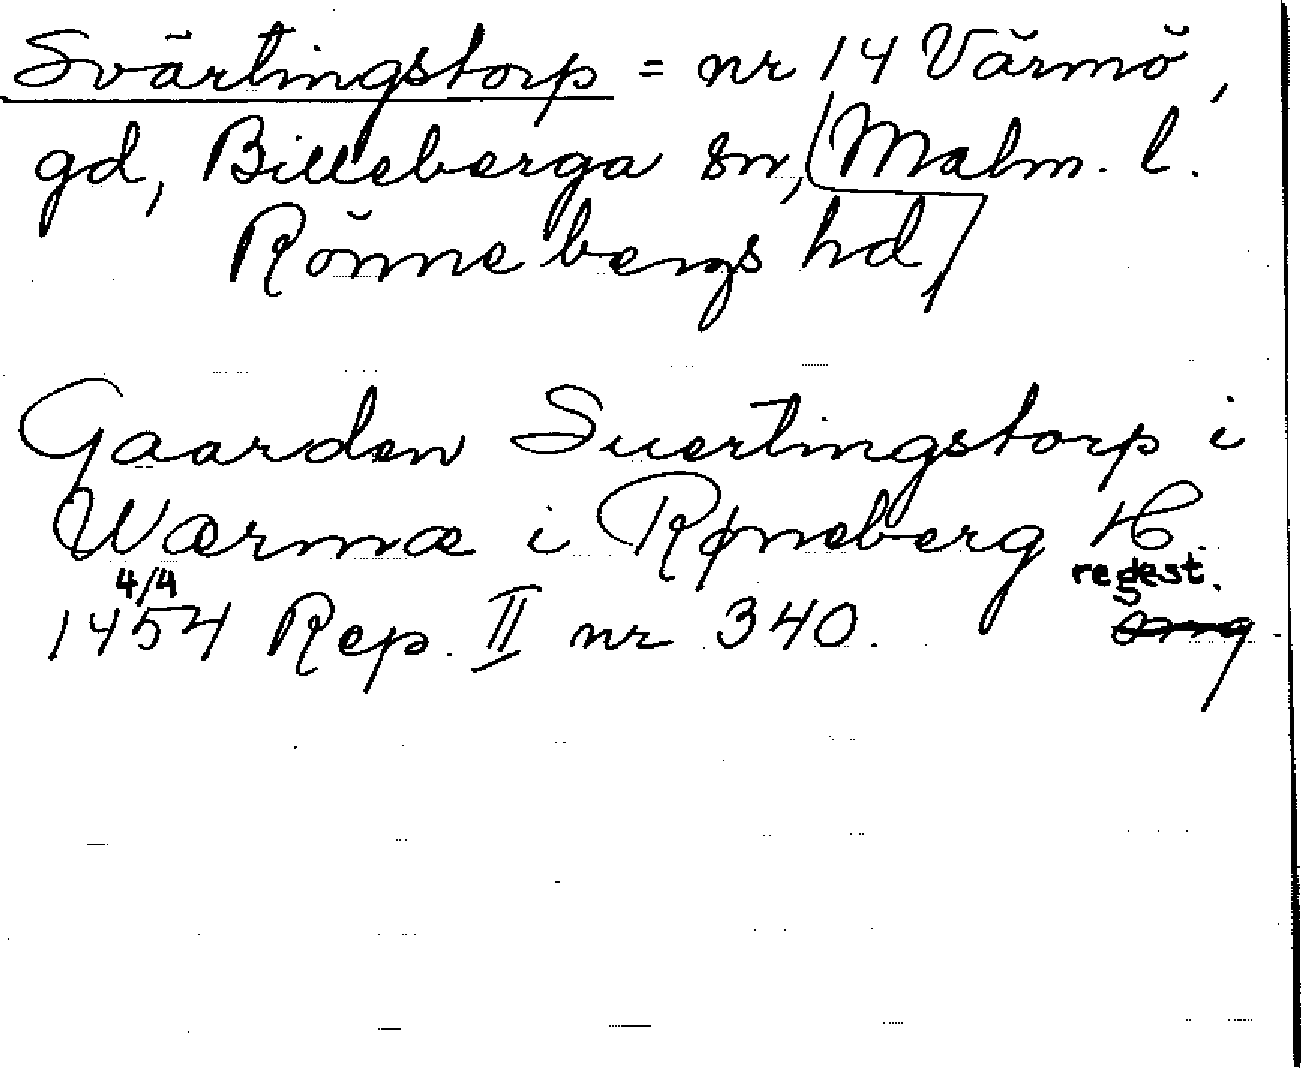 Svärtingstorp = nr 14 Värmö,
gd, Billeberga sn, Malm. l.
Rönnebergs hd,
Gaarden Suertingstorp i
Wærmæ i Røneberg H.
4/4 regest.
1454 Rep. II nr 340.